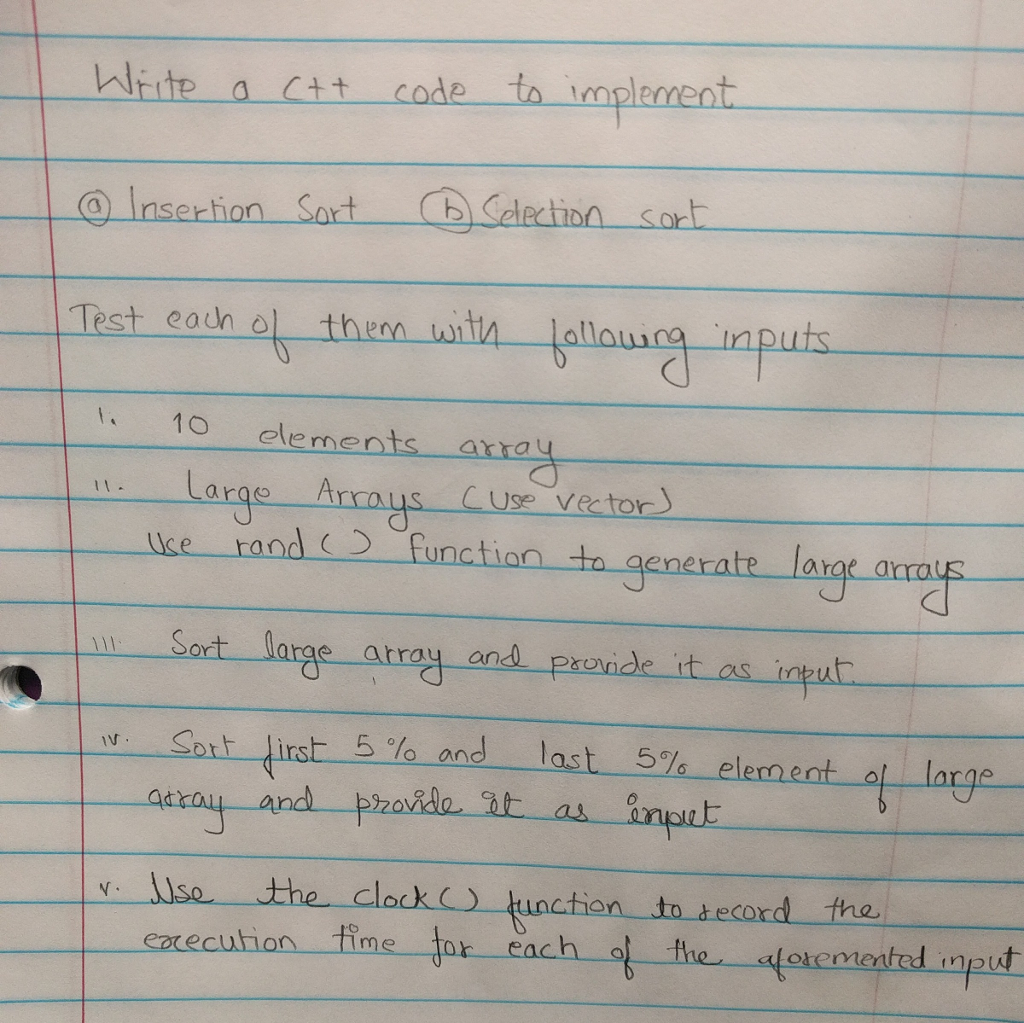 Write a C++ code to implement
ⓐ Insertion Sort ⓑ Selection sort
Test each of them with following inputs
i. 10 elements array
ii. Large Arrays (Use vector)
Use rand() function to generate large arrays
iii. Sort large array and provide it as input.
iv. Sort first 5% and last 5% element of large
array and provide it as input
v. Use the clock() function to record the
execution time for each of the aforemented input